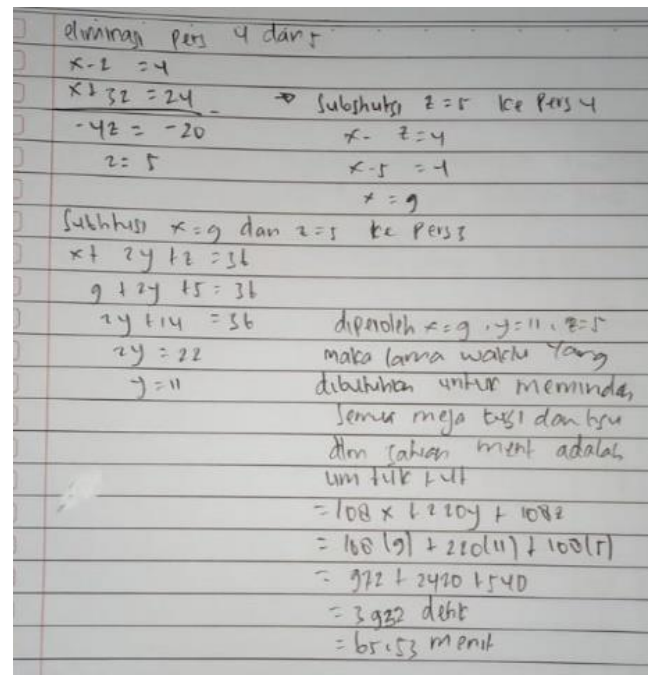 eliminasi pers 4 dan 5
x - z = 4
x + 3z = 24
-4z = -20
z = 5
→ Substitusi z = 5 ke Pers 4
x - z = 4
x - 5 = 4
x = 9
Subtitusi x = 9 dan z = 5 ke Pers 3
x + 2y + z = 36
9 + 2y + 5 = 36
2y + 14 = 36
2y = 22
y = 11
diperoleh x = 9, y = 11, z = 5
maka lama waktu Yang
dibutuhkan untuk meminda,
Semua meja dan
dlm satuan menit adalah
= 108x + 220y + 108z
= 108 (9) + 220(11) + 108(5)
= 972 + 2420 + 540
= 3932 detik
= 65,53 menit